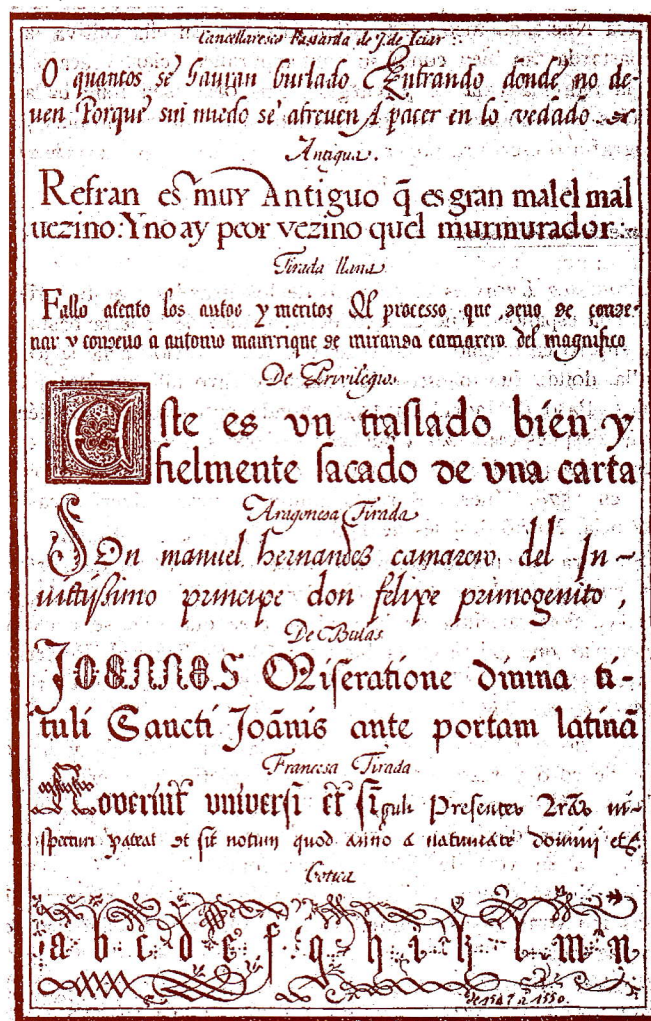 Cancellaresca Bastarda de J. de Iciar
O quantos se hauran burlado Entrando donde no de-
uen Porque sin miedo se atreuen A pacer en lo vedado
Antigua.
Refran es muy Antiguo q̃ es gran mal el mal
uezino: Y no ay peor vezino quel murmurador:
Tirada llana
Fallo atento los autos y meritos del processo que deuo de conde-
nar y condeno a antonio manrrique de miranda camarero del magnifico
De Privilegios
Este es vn traslado bien y
fielmente sacado de vna carta
Aragonesa Tirada
Don manuel hernandez camarero del In-
uictissimo principe don felipe primogenito,
De Bulas
JOANNES Miseratione diuina ti-
tuli Sancti Joãnis ante portam latinã
Francesa Tirada
Noverint universi et singuli Presentes lr̃as in-
specturi pateat et sit notum quod anno a natiuitate domini etc
Gotica
a b c d e f g h i k l m n
de 1547 a 1550.